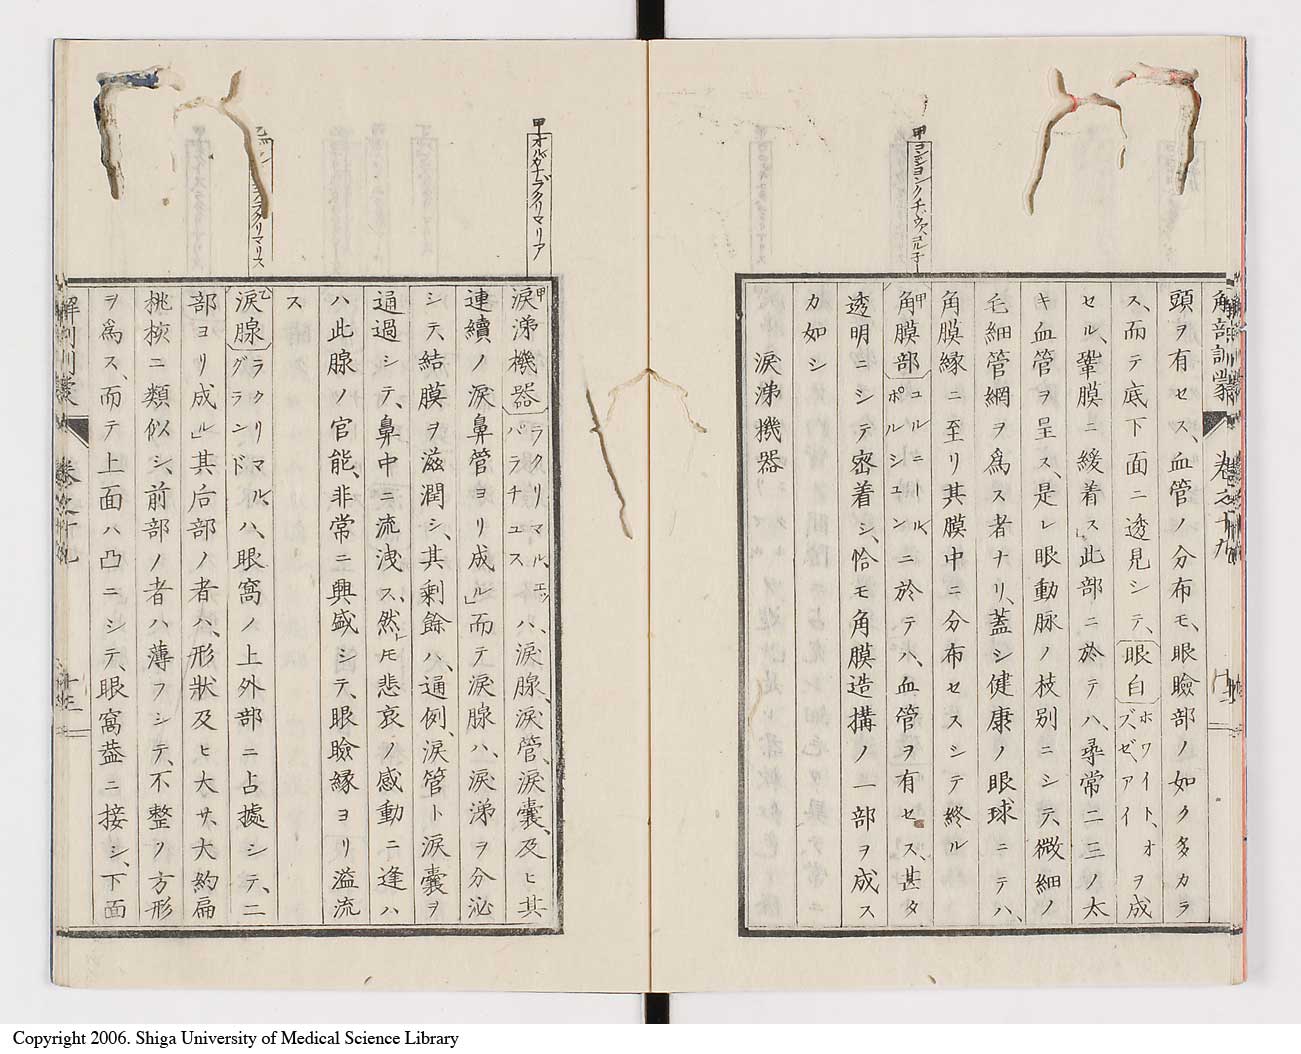 解剖訓蒙 卷之十九
頭ヲ有セス、血管ノ分布モ、眼瞼部ノ如ク多カラ
ス、而テ底下面ニ透見シテ、眼白 ホワイト、オ ブ、ゼ、アイ ヲ成
セル、鞏膜ニ緩着ス」此部ニ於テハ、尋常二三ノ太
キ血管ヲ呈ス、是レ眼動脉ノ枝別ニシテ、微細ノ
毛細管網ヲ爲ス者ナリ、蓋シ健康ノ眼球ニテハ、
角膜緣ニ至リ其膜中ニ分布セスシテ終ル
甲コンジョンクチヴァコル子ー
甲角膜部 コルニール、ポルシュン ニ於テハ、血管ヲ有セス、甚タ
透明ニシテ密着シ、恰モ角膜造搆ノ一部ヲ成ス
カ如シ
淚涕機器
甲オルガナラクリマリア
甲淚涕機器 ラクリマル、エッパラチュス ハ、淚腺、淚管、淚囊、及ヒ其
連續ノ淚鼻管ヨリ成ル」而テ淚腺ハ、淚涕ヲ分泌
シテ、結膜ヲ滋潤シ、其剩餘ハ、通例、淚管ト淚囊ヲ
通過シテ、鼻中ニ流洩ス、然𪜈悲哀ノ感動ニ逢ハ
ハ此腺ノ官能、非常ニ興盛シテ、眼瞼緣ヨリ溢流
ス
ラクリマリス
乙淚腺 ラクリマル、グランド ハ、眼窩ノ上外部ニ占據シテ、二
部ヨリ成ル」其后部ノ者ハ、形狀及ヒ大サ、大約扁
桃核ニ類似シ、前部ノ者ハ薄フシテ、不整ノ方形
ヲ爲ス、而テ上面ハ凸ニシテ、眼窩葢ニ接シ、下面
解剖訓蒙 卷之十九 十三
Copyright 2006. Shiga University of Medical Science Library